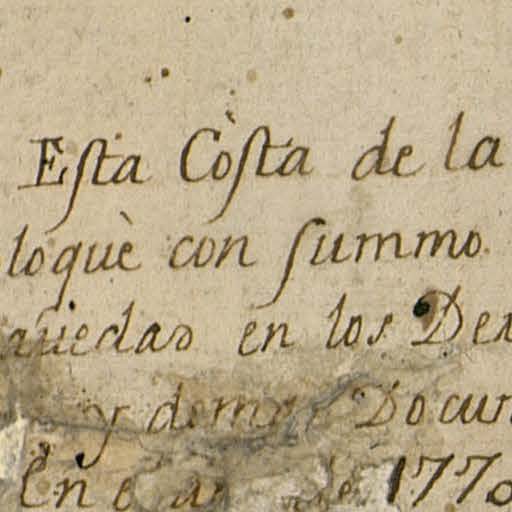 Esta Còsta de la
loquè con summo
en los Der
y demas Docum
En 1770